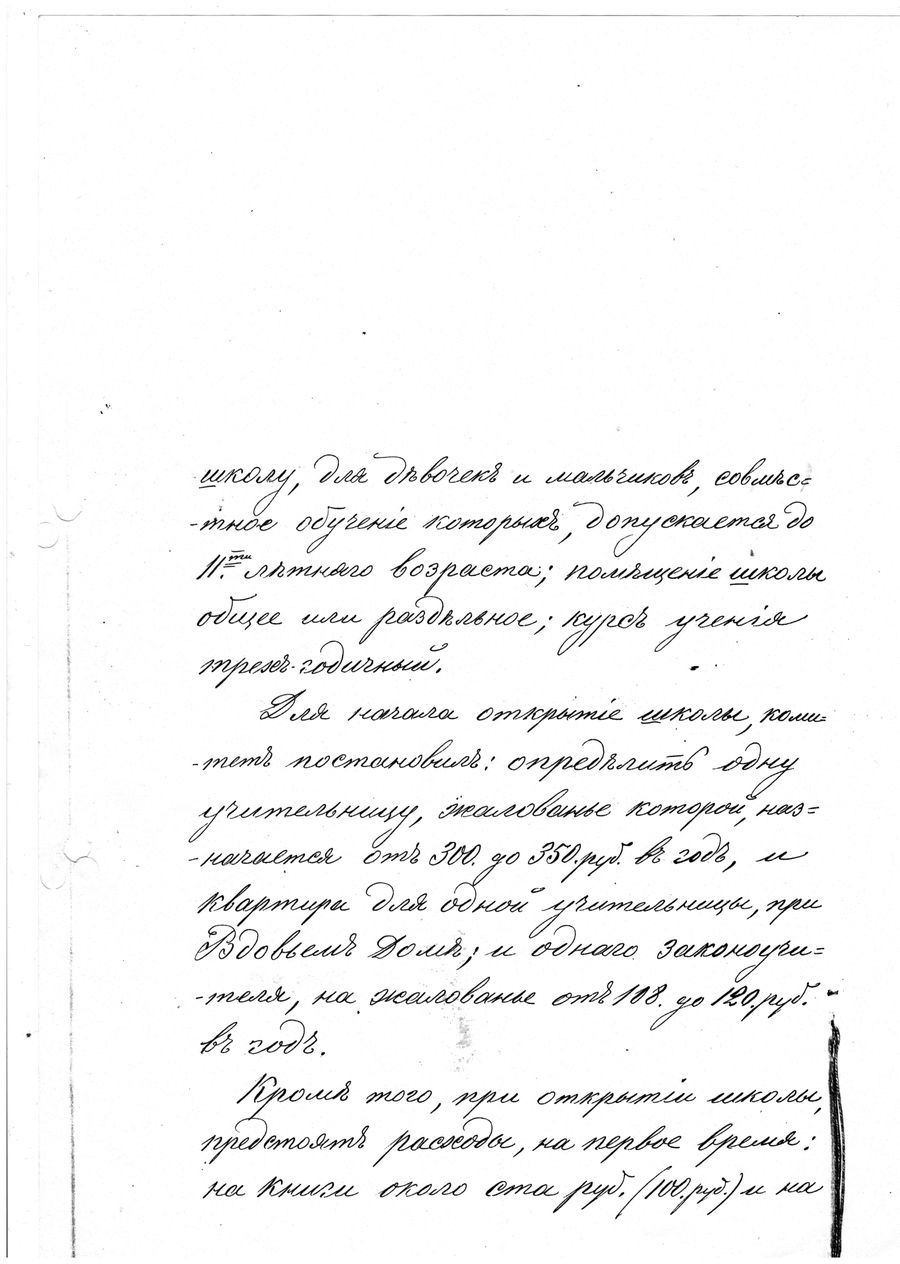 школу, для дѣвочекъ и мальчиковъ, совмѣс=
-тное обученіе которыхъ, допускается до
11.ти лѣтняго возраста; помѣщеніе школы
общее или раздѣльное; курсъ ученія
трехъ-годичный.
Для начала открытіе школы, коми=
-тетъ постановилъ: опредѣлить одну
учительницу, жалованье которой, наз=
-начается отъ 300. до 350. руб. въ годъ, и
квартира для одной учительницы, при
Вдовьемъ Домѣ; и однаго законоучи=
-теля, на жалованье отъ 108. до 120. руб.
въ годъ.
Кромѣ того, при открытіи школы,
предстоятъ расходы, на первое время:
на книги около ста руб. (100. руб.) и на